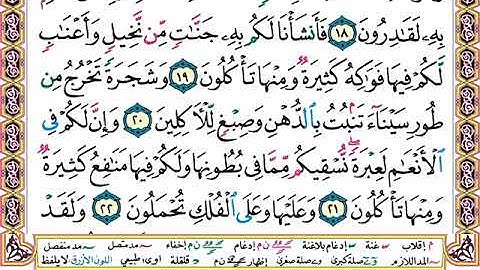 بِهِۦ لَقَٰدِرُونَ ١٨ فَأَنشَأْنَا لَكُم بِهِۦ جَنَّٰتٍ مِّن نَّخِيلٍ وَأَعْنَٰبٍ
لَّكُمْ فِيهَا فَوَٰكِهُ كَثِيرَةٌ وَمِنْهَا تَأْكُلُونَ ١٩ وَشَجَرَةً تَخْرُجُ مِن
طُورِ سَيْنَآءَ تَنۢبُتُ بِٱلدُّهْنِ وَصِبْغٍ لِّلْءَاكِلِينَ ٢٠ وَإِنَّ لَكُمْ فِى
ٱلْأَنْعَٰمِ لَعِبْرَةً نُّسْقِيكُم مِّمَّا فِى بُطُونِهَا وَلَكُمْ فِيهَا مَنَٰفِعُ كَثِيرَةٌ
وَمِنْهَا تَأْكُلُونَ ٢١ وَعَلَيْهَا وَعَلَى ٱلْفُلْكِ تُحْمَلُونَ ٢٢ وَلَقَدْ
م إقلاب ـّ غنة ـ إدغام بلاغنة ن م إدغام إخفاء ـ مد متصل ـ مد منفصل
المد اللازم صلة كبرى صلة صغرى إظهار ن م قلقلة أوى: طبيعي اللون الأزرق لا يلفظ